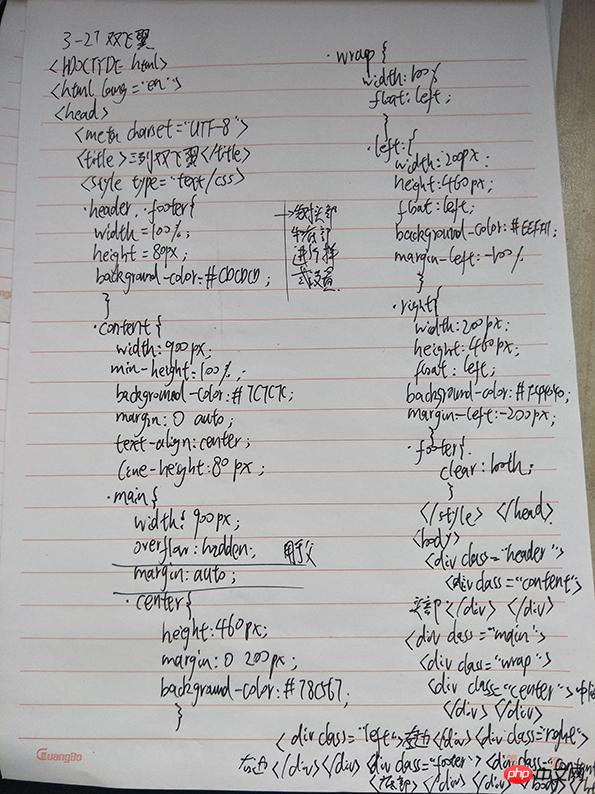 3-27 双飞翼
<!DOCTYPE html>
<html lang="en">
<head>
<meta charset="UTF-8">
<title>三列双飞翼</title>
<style type="text/css">
.header, .footer{
width=100%;
height=80px;
background-color:#CDCDCD;
}
→针对头部
和底部
进行样
式设置
.content{
width:900px;
min-height:100%;
background-color:#7C7C7C;
margin:0 auto;
text-align:center;
line-height:80px;
.main{
width:900px;
overflow:hidden;
margin:auto;
.center{
height:460px;
margin:0 200px;
background-color:#78C567;
}
.wrap{
width:100%
float:left;
}
.left:{
width:200px;
height:460px;
float:left;
background-color:
margin-left:-100%
}
.right{
width:200px;
height:460px;
float:left;
background-color:
margin-left:-200px;
}
.footer{
clear:both;
}
</style> </head>
<body>
<div class="header">
<div class="content">
头部</div> </div>
<div class="main">
<div class="wrap">
<div class="center">
</div> </div>
<div class="left">左边</div> <div class="right">
右边</div> </div> <div class="footer"> <div class="content
底部</div> </div> </body>
GuangBo
php中文网